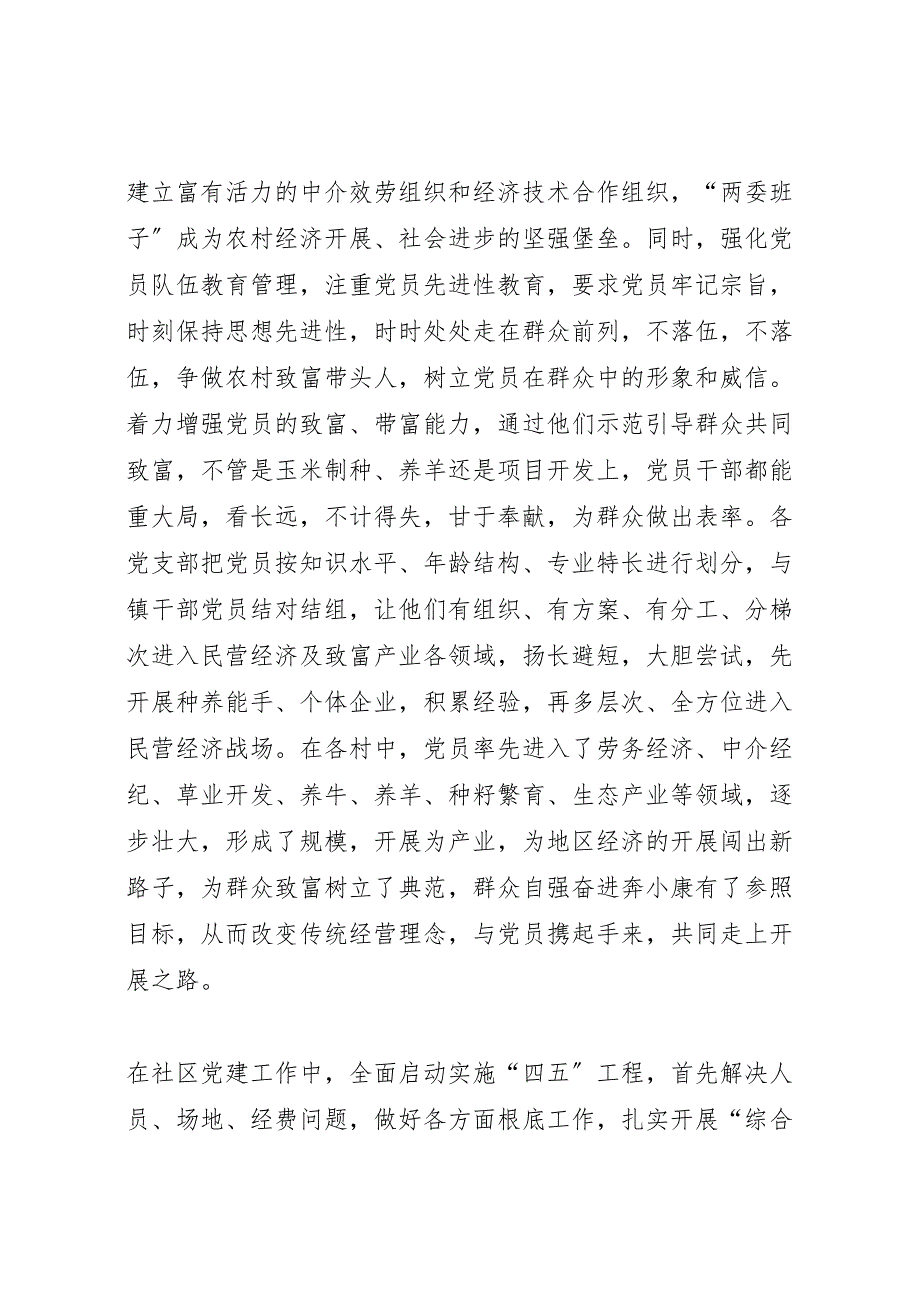 建立富有活力的中介效劳组织和经济技术合作组织，“两委班
子〞成为农村经济开展、社会进步的坚强堡垒。同时，强化党
员队伍教育管理，注重党员先进性教育，要求党员牢记宗旨，
时刻保持思想先进性，时时处处走在群众前列，不落伍，不落
伍，争做农村致富带头人，树立党员在群众中的形象和威信。
着力增强党员的致富、带富能力，通过他们示范引导群众共同
致富，不管是玉米制种、养羊还是项目开发上，党员干部都能
重大局，看长远，不计得失，甘于奉献，为群众做出表率。各
党支部把党员按知识水平、年龄结构、专业特长进行划分，与
镇干部党员结对结组，让他们有组织、有方案、有分工、分梯
次进入民营经济及致富产业各领域，扬长避短，大胆尝试，先
开展种养能手、个体企业，积累经验，再多层次、全方位进入
民营经济战场。在各村中，党员率先进入了劳务经济、中介经
纪、草业开发、养牛、养羊、种籽繁育、生态产业等领域，逐
步壮大，形成了规模，开展为产业，为地区经济的开展闯出新
路子，为群众致富树立了典范，群众自强奋进奔小康有了参照
目标，从而改变传统经营理念，与党员携起手来，共同走上开
展之路。
在社区党建工作中，全面启动实施“四五〞工程，首先解决人
员、场地、经费问题，做好各方面根底工作，扎实开展“综合